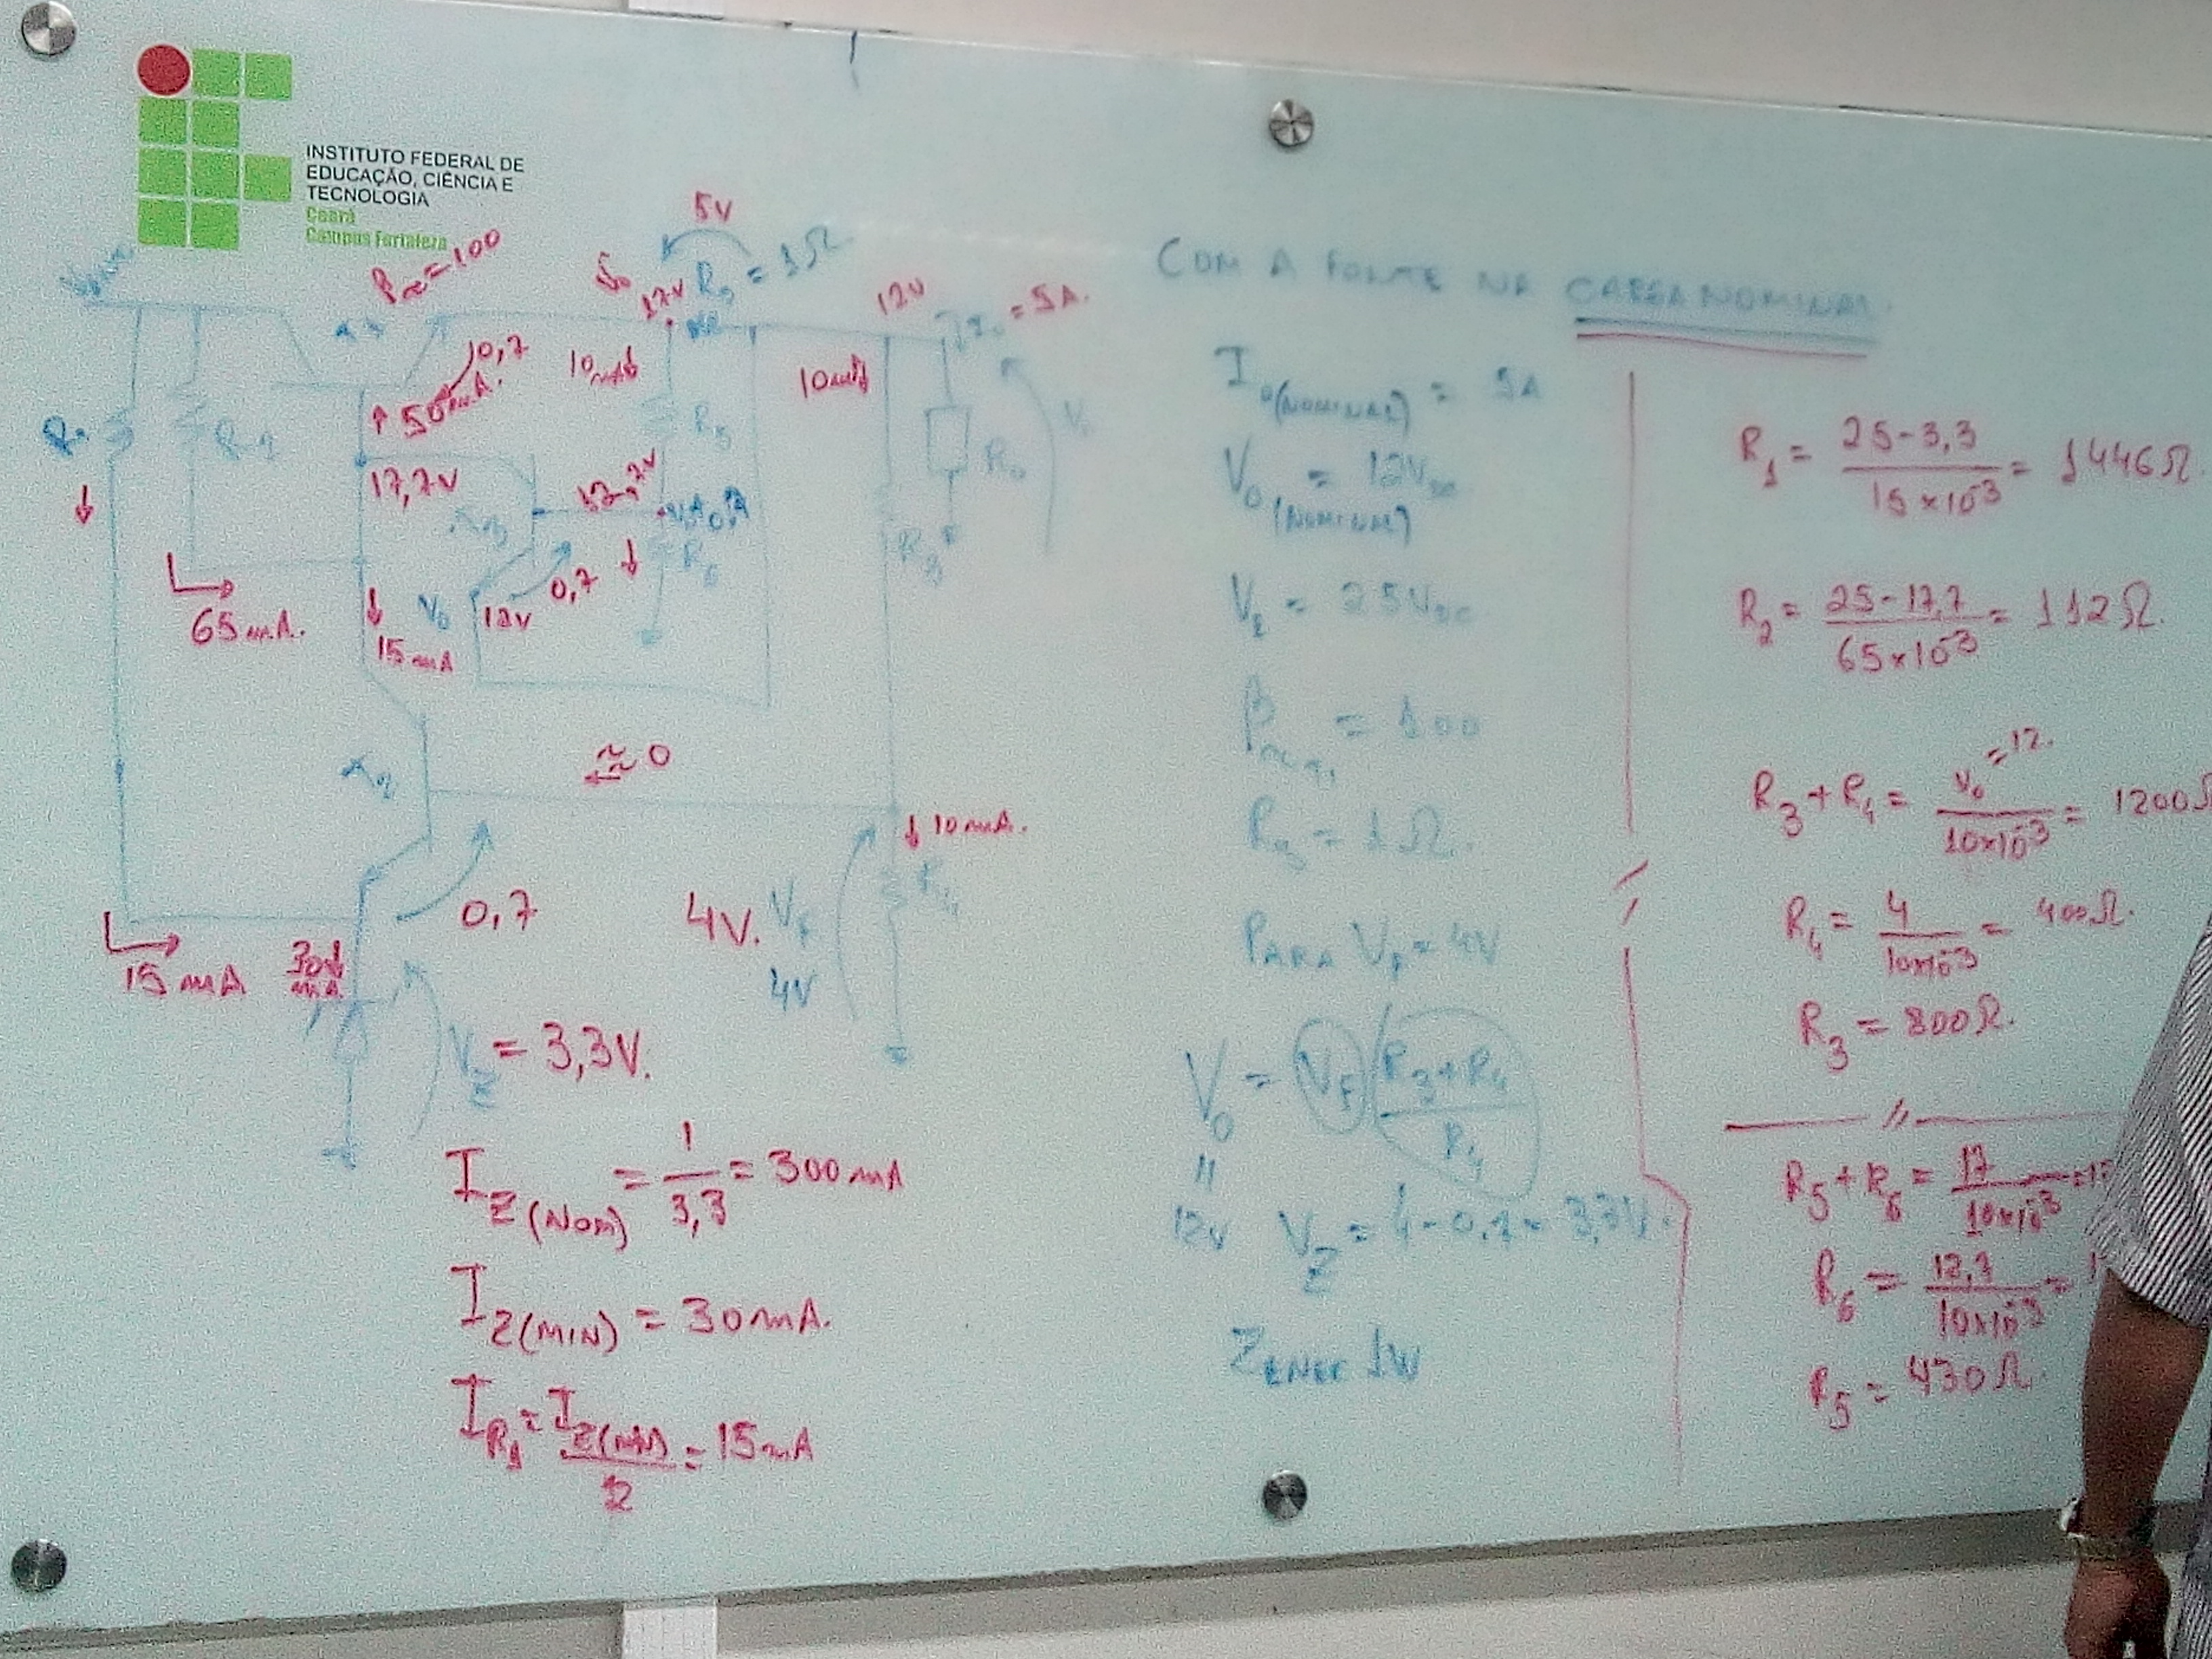 INSTITUTO FEDERAL DE
EDUCAÇÃO, CIÊNCIA E
TECNOLOGIA
Ceará
Campus Fortaleza
= 100
5V
17V
= 1Ω
12V
= 5A.
0,7
50mA.
10mA
10mA
R5
17,7V
12,7V
R6
R3
0,7
65mA.
V0
12V
15mA
≈0
10mA.
0,7
4V. VF
4V
15mA
30
mA
VZ = 3,3V.
IZ(NOM) = 1/3,3 = 300mA
IZ(MIN) = 30mA.
IR1 = IZ(MIN)/2 = 15mA
COM A FONTE NA CARGA NOMINAL.
I0(NOMINAL) = 5A
V0(NOMINAL) = 12VDC
= 25VDC
= 100
= 1Ω.
PARA VF = 4V
V0 = (VF) (R3+R4/R4)
"
12V VZ = 4-0,7 = 3,3V.
ZENER 1W
R1 = 25-3,3/15×10-3 = 1446Ω
R2 = 25-17,7/65×10-3 = 112Ω.
R3+R4 = V0=12./10×10-3 = 1200Ω
R4 = 4/10×10-3 = 400Ω.
R3 = 800Ω.
R5+R6 = 17/10×10-3 =
R6 = 12,7/10×10-3 =
R5 = 430Ω.